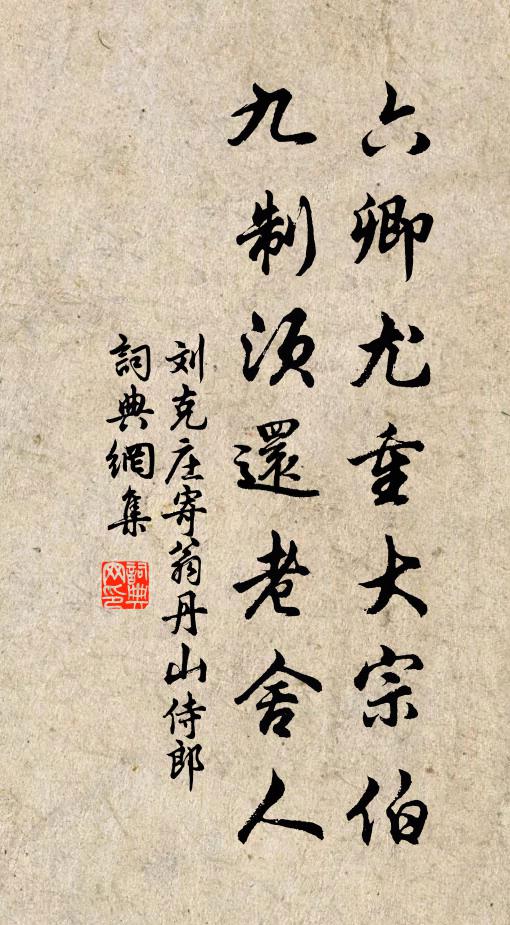 六卿尤重大宗伯
九制须還老舍人
刘克庄寄翁丹山侍郎
詞典網集
詞典网印